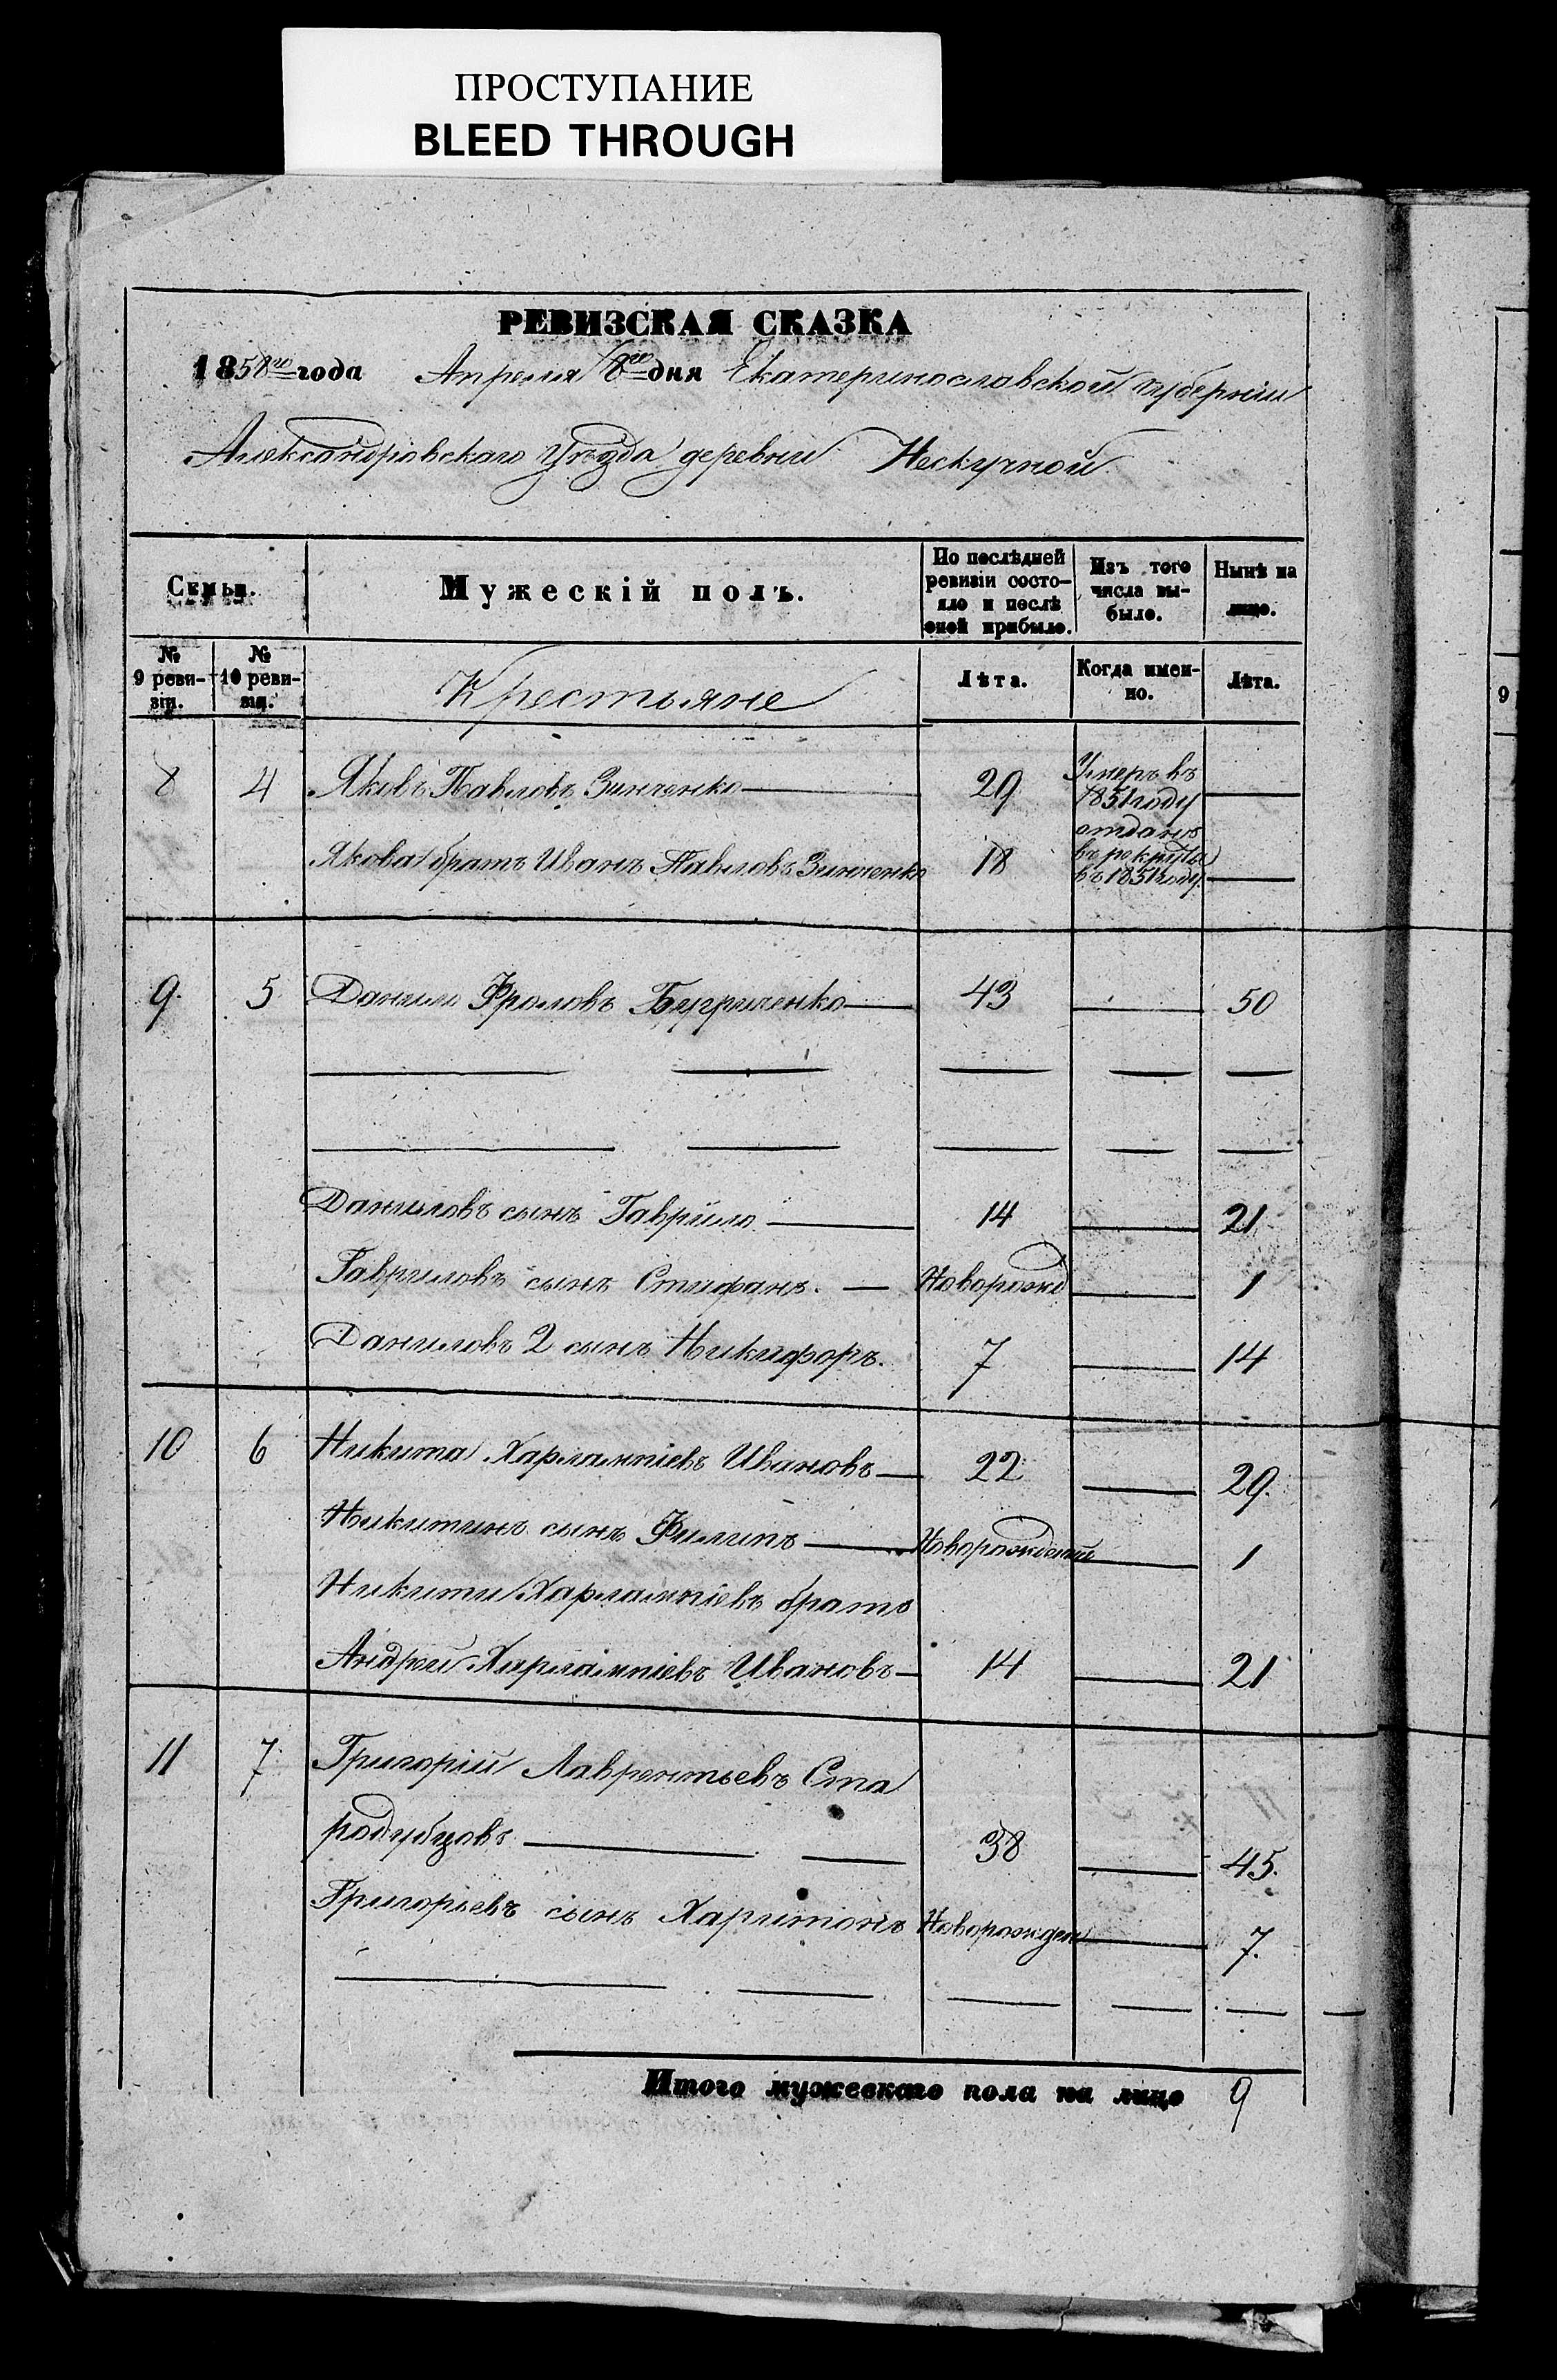 ПРОСТУПАНИЕ
BLEED THROUGH
РЕВИЗСКАЯ СКАЗКА
1858го года Апреля 8го дня Екатеринославской губернии
Александровскаго уѣзда деревни Нескучной
Семьи.
Мужескій полъ.
По послѣдней ревизіи состо-
яло и послѣ
оной прибыло.
Изъ того
числа вы-
было.
Нынѣ на
лицо.
№
9 реви-
зіи.
№
10 реви-
зіи.
Крестьяне
Лѣта.
Когда имен-
но.
Лѣта.
8 4 Яковъ Павловъ Зинченко 29 Умеръ въ
1851 году
Якова братъ Иванъ Павловъ Зинченко 18 отданъ
въ рекруты
въ 1851 году
9. 5 Данило Фроловъ Бугриченко 43 50
Даниловъ сынъ Гаврило 14 21
Гавриловъ сынъ Стифанъ. Новорожд 1
Даниловъ 2 сынъ Никифоръ. 7 14
10 6 Никита Харлампіевъ Ивановъ 22 29.
Никитинъ сынъ Филипъ Новорожденый 1
Никиты Харлампіевъ братъ
Андрей Харлампіевъ Ивановъ 14 21
11 7 Григорій Лаврентьевъ Ста
родубцовъ 38 45.
Григорьевъ сынъ Харитонъ Новорожден 7.
Итого мужескаго пола на лицо 9
9